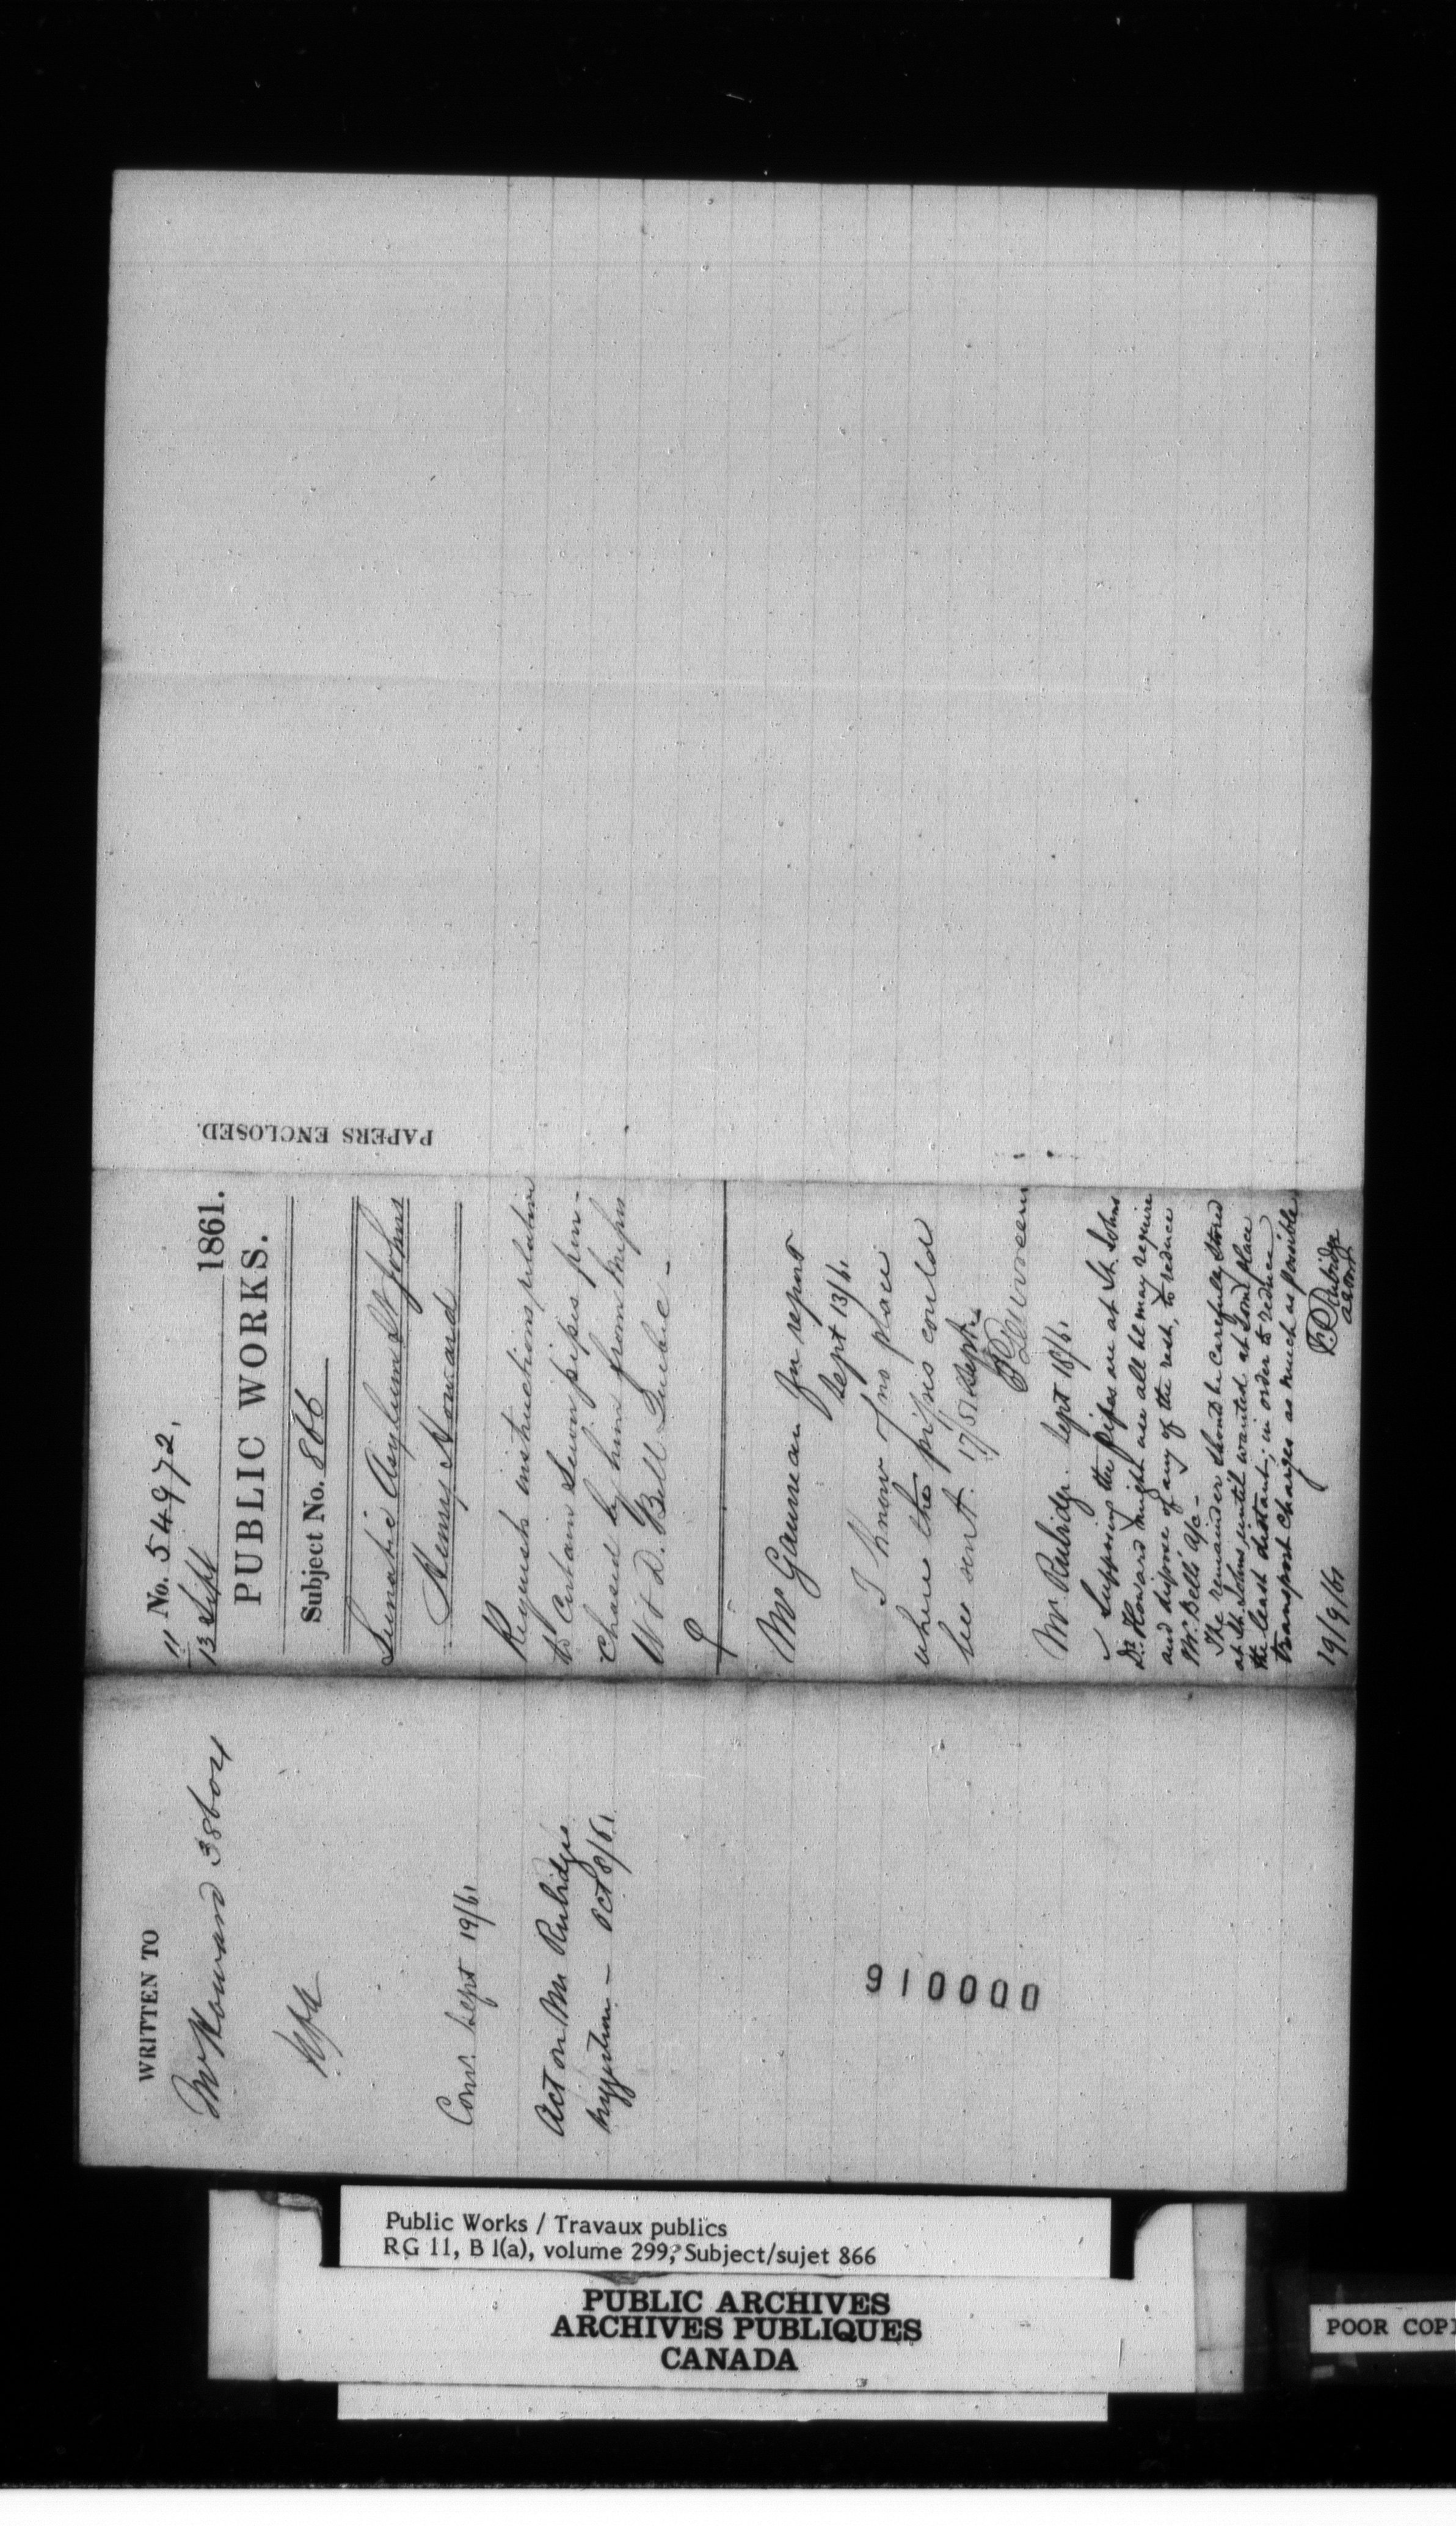 No. 54972.
11
13 Sept 1861.
PUBLIC WORKS.
Subject No. 866
Lunatic Asylum St Johns
Henry Howard
Requests instructions relative
to Certain Sewer pipes pur-
chased by him from Messrs
W & D. Bell Quebec -
Mr Gauvreau for report
Sept 13/61
I know of no place
where the pipes could
be sent. 17/Sept.
Gauvreau
Mr. Rubidge. Sept 18/61
Supposing the pipes are at St. Johns
Dr. Howard might use all he may require
and dispose of any of the rest, to reduce
Mr. Bell's a/c -
The remainder should be carefully stored
at St. Johns until wanted at some place
the least distant; in order to reduce
transport charges as much as possible
19/9/61
F.P. Rubidge
PAPERS ENCLOSED.
WRITTEN TO
Mr Howard 38604
Comr. Sept 19/61
Act on Mr Rubidge's
suggestion - Oct 8/61.
910000
Public Works / Travaux publics
RG 11, B 1(a), volume 299, Subject/sujet 866
PUBLIC ARCHIVES
ARCHIVES PUBLIQUES
CANADA
POOR COPI